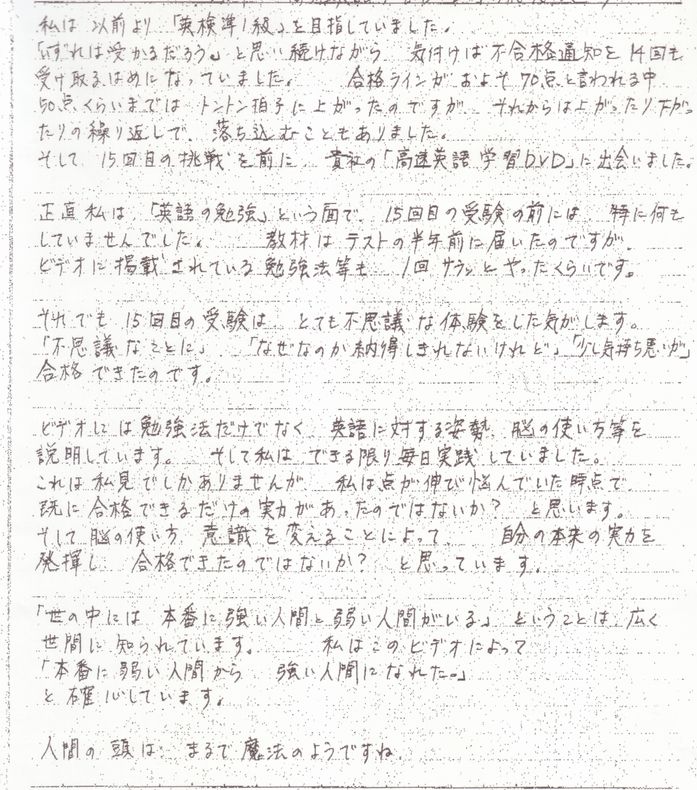 私は 以前より 「英検準1級」を目指していました。
「いずれは受かるだろう。」と思い続けながら 気付けば不合格通知を 14回も
受け取るはめになっていました。 合格ラインが およそ 70点と言われる中
50点くらいまでは トントン拍子に上がったのですが、それからは上がったり下がっ
たりの繰り返しで、落ち込むこともありました。
そして 15回目の挑戦を前に、貴社の「高速英語学習DVD」に出会いました。
正直私は、「英語の勉強」という面で、15回目の受験の前には 特に何も
していませんでした。 教材は テストの半年前に届いたのですが、
ビデオに掲載されている勉強法等も 1回 サラッとやったくらいです。
それでも 15回目の受験は とても不思議な体験をした気がします。
「不思議なことに」 「なぜなのか納得しきれないけれど」「少し気持ち悪いが」
合格できたのです。
ビデオには勉強法だけでなく 英語に対する姿勢、脳の使い方等を
説明しています。 そして私は できる限り毎日実践していました。
これは 私見でしかありませんが 私は点が伸び悩んでいた時点で、
既に合格できるだけの実力があったのではないか? と思います。
そして脳の使い方、意識を変えることによって、 自分の本来の実力を
発揮し 合格できたのではないか? と思っています。
「世の中には 本番に強い人間と弱い人間がいる」 ということは、広く
世間に知られています。 私はこのビデオによって
「本番に弱い人間から 強い人間になれた。」
と確心しています。
人間の頭は まるで魔法のようですね。